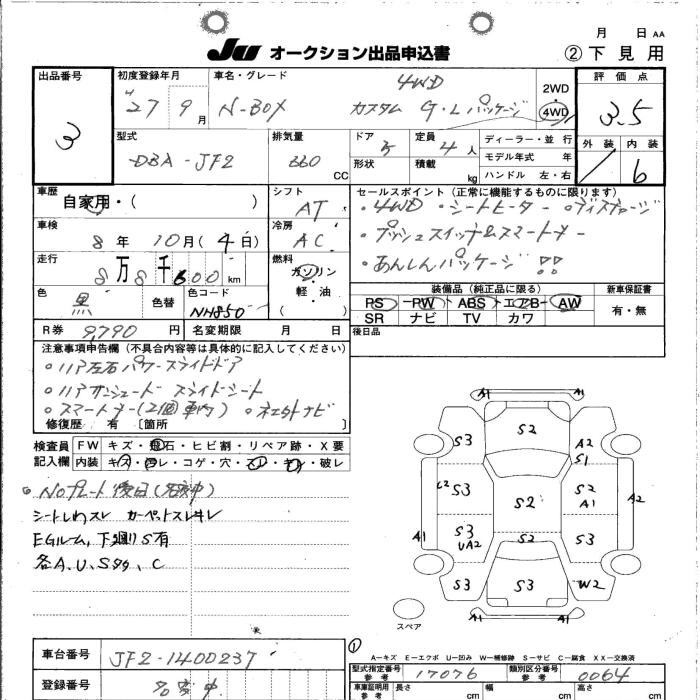 月 日 AA
JU オークション出品申込書
② 下見用
出品番号
3
初度登録年月
H 27 9 月
車名・グレード
4WD
N-BOX カスタム G・Lパッケージ
2WD
4WD
評価点
3.5
外装 内装
6
型式
DBA-JF2
排気量
660 CC
ドア
5
定員
4 人
形状
積載
kg
ディーラー・並行
モデル年式 年
ハンドル 左・右
車歴
自家用・( )
シフト
AT
セールスポイント(正常に機能するものに限ります)
・4WD ・シートヒーター ・ディスチャージ
・プッシュスイッチ&スマートキー
・あんしんパッケージ !!
車検
8 年 10 月 ( 4 日)
冷房
AC
走行
8 万 8 千 600 km
燃料
ガソリン
軽・油
( )
色
黒
色替
色コード
NH850
装備品(純正品に限る)
PS PW ABS エアB AW
SR ナビ TV カワ
新車保証書
有・無
R券 9,790 円
名変期限 月 日
後日品
注意事項申告欄(不具合内容等は具体的に記入してください)
・リア左右パワースライドドア
・リアサンシェード スライドシート
・スマートキー(2個 車内) ・ネエトナビ
修復歴 有 〔箇所 〕
検査員
記入欄
FW キズ・飛石・ヒビ割・リペア跡・X要
内装 キズ・ヨゴレ・コゲ・穴・スレ・キレ・破レ
Noプレート後日(名変中)
シートしわスレ カーペットスレキレ
EGルーム、下廻りS有
各A、U、Sタタ、C
A1 A1
S3 S2 A2
S1
S3 S2 S2
A1 A2
A1 S3
UA2 S2 S3
S3 S3 W2
A1 A1
スペア
A-キズ E-エクボ U-凹み W-補修跡 S-サビ C-腐食 XX-交換済
車台番号
JF2-1400237
登録番号
名変中
①
型式指定番号
参考
17076
類別区分番号
参考
0064
車庫証明用
参考
長さ
cm
幅
cm
高さ
cm